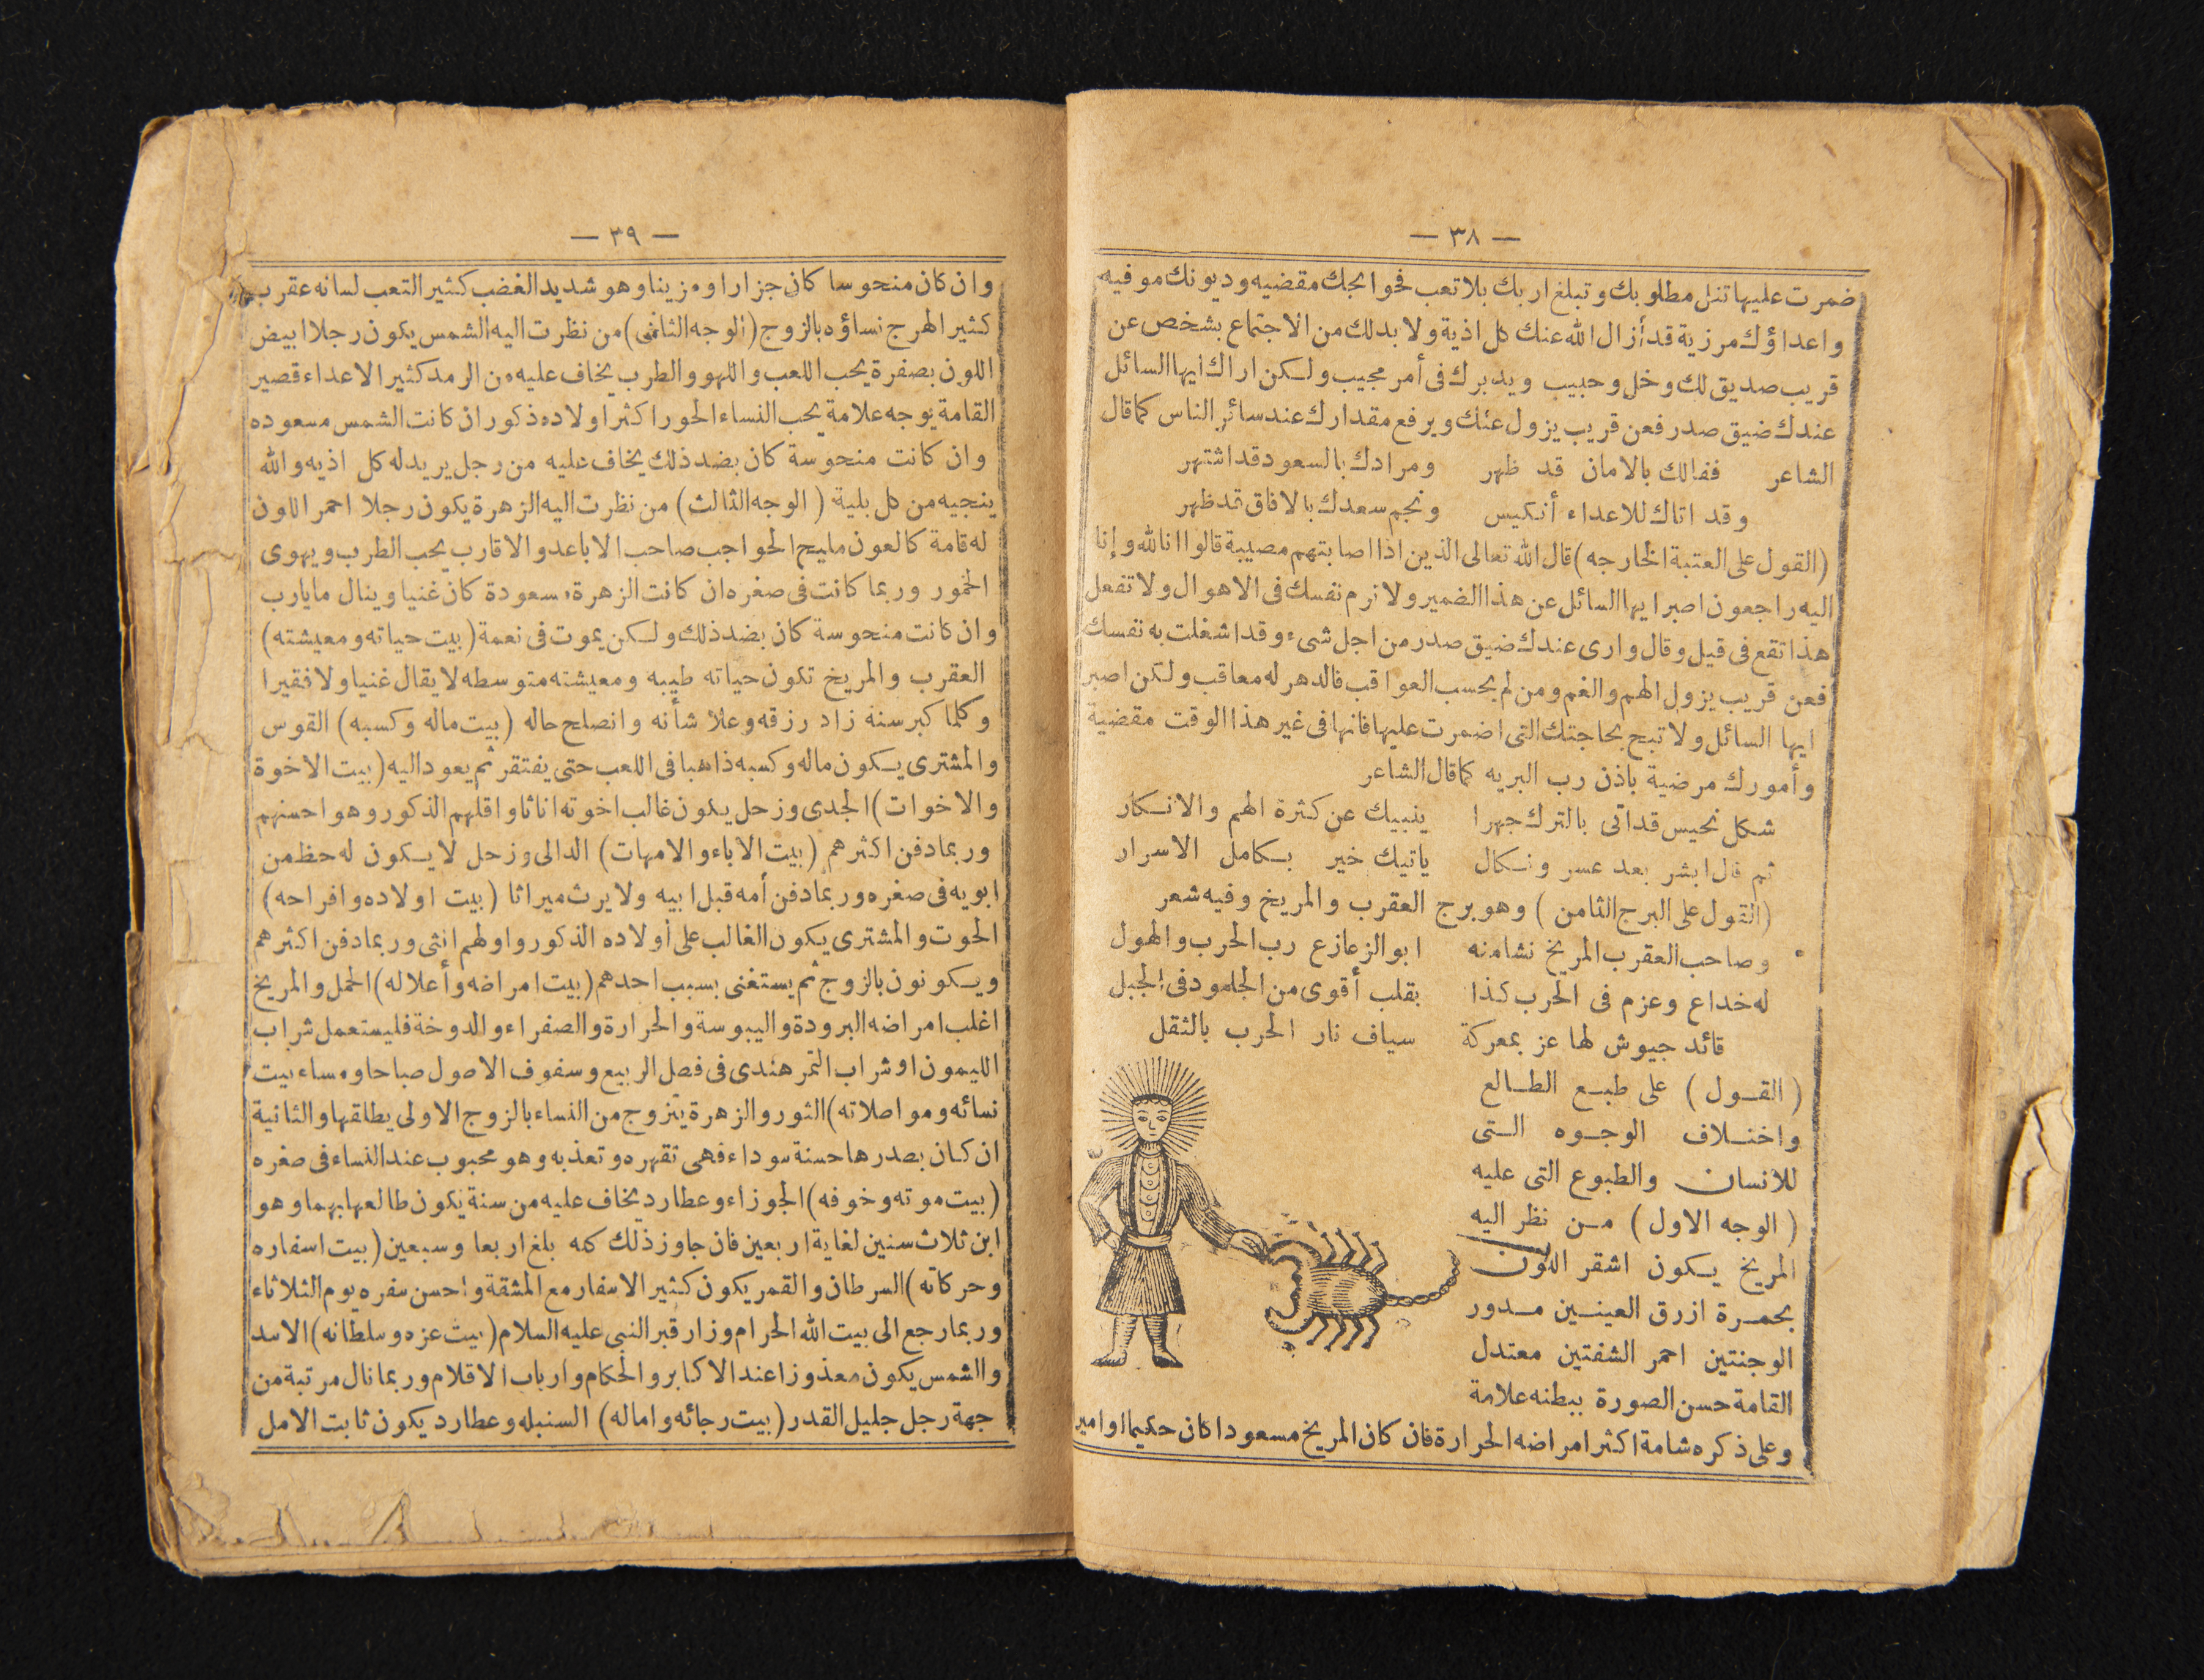 — ٣٨ —
ضمرت عليها تنل مطلوبك وتبلغ اربك بلا تعب فحوايجك مقضيه وديونك موفيه
واعداؤك مرزية قد أزال الله عنك كل اذية ولا بد لك من الاجتماع بشخص عن
قريب صديق لك وخل وحبيب ويدبرك فى أمر مجيب ولكن اراك ايها السائل
عندك ضيق صدر فعن قريب يزول عنك ويرفع مقدارك عند سائر الناس كما قال
الشاعر ففالك بالامان قد ظهر ومرادك بالسعود قد اشتهر
وقد اتاك للاعداء أنكيس ونجم سعدك بالافاق قد ظهر
(القول على العتبة الخارجه) قال الله تعالى الذين اذا اصابتهم مصيبة قالوا انا لله وإنا
اليه راجعون اصبر ايها السائل عن هذا الضمير ولا ترم نفسك فى الاهوال ولا تفعل
هذا تقع فى قيل وقال وارى عندك ضيق صدر من اجل شىء وقد اشغلت به نفسك
فعن قريب يزول الهم والغم ومن لم يحسب العواقب فالدهر له معاقب ولكن اصبر
ايها السائل ولا تبح بحاجتك التى اضمرت عليها فانها فى غير هذا الوقت مقضية
وأمورك مرضية باذن رب البريه كما قال الشاعر
شكل نحيس قد اتى بالترك جهرا ينبيك عن كثرة الهم والانكار
ثم قال ابشر بعد عسر ونكال ياتيك خير بكامل الاسرار
(القول على البرج الثامن) وهو برج العقرب والمريخ وفيه شعر
وصاحب العقرب المريخ نشامنه ابو الزعازع رب الحرب والهول
له خداع وعزم فى الحرب كذا بقلب أقوى من الجلمود فى الجبل
قائد جيوش لها عز بمعركة سياف نار الحرب بالثقل
(القول) على طبع الطالع
واختلاف الوجوه التى
للانسان والطبوع التى عليه
(الوجه الاول) من نظر اليه
المريخ يكون اشقر اللون
بحمرة ازرق العينين مدور
الوجنتين احمر الشفتين معتدل
القامة حسن الصورة ببطنه علامة
وعلى ذكره شامة اكثر امراضه الحرارة فان كان المريخ مسعودا كان حكيما او امير
— ٣٩ —
وان كان منحوسا كان جزارا ومزينا وهو شديد الغضب كثير التعب لسانه عقرب
كثير الهرج نساؤه بالزوج (الوجه الثانى) من نظرت اليه الشمس يكون رجلا ابيض
اللون بصفرة يحب اللعب واللهو والطرب يخاف عليه من الرمد كثير الاعداء قصير
القامة بوجه علامة يحب النساء الحور اكثر اولاده ذكور ان كانت الشمس مسعوده
وان كانت منحوسة كان بضد ذلك يخاف عليه من رجل يريد له كل اذيه والله
ينجيه من كل بلية (الوجه الثالث) من نظرت اليه الزهرة يكون رجلا احمر اللون
له قامة كالعون مليح الحواجب صاحب الاباعد والاقارب يحب الطرب ويهوى
الخمور وربما كانت فى صغره ان كانت الزهرة مسعودة كان غنيا وينال مايارب
وان كانت منحوسة كان بضد ذلك ولكن يموت فى نعمة (بيت حياته ومعيشته)
العقرب والمريخ تكون حياته طيبه ومعيشته متوسطه لا يقال غنيا ولا فقيرا
وكلما كبر سنه زاد رزقه وعلا شأنه وانصلح حاله (بيت ماله وكسبه) القوس
والمشترى يكون ماله وكسبه ذاهبا فى اللعب حتى يفتقر ثم يعود اليه (بيت الاخوة
والاخوات) الجدى وزحل يكون غالب اخوته اناثا واقلهم الذكور وهو احسنهم
وربما دفن اكثرهم (بيت الاباء والامهات) الدالى وزحل لا يكون له حظ من
ابويه فى صغره وربما دفن أمه قبل ابيه ولا يرث ميراثا (بيت اولاده وافراحه)
الحوت والمشترى يكون الغالب على أولاده الذكور واولهم انثى وربما دفن اكثرهم
ويكونون بالزوج ثم يستغنى بسبب احدهم (بيت امراضه وأعلاله) الحمل والمريخ
اغلب امراضه البرودة واليبوسة والحرارة والصفراء والدوخة فليستعمل شراب
الليمون او شراب التمر هندى فى فصل الربيع وسفوف الاصول صباحا ومساء بيت
نسائه ومواصلاته) الثور والزهرة يتزوج من النساء بالزوج الاولى يطلقها والثانية
ان كان بصدرها حسنة سوداء فهى تقهره وتعذبه وهو محبوب عند النساء فى صغره
(بيت موته وخوفه) الجوزاء وعطارد يخاف عليه من سنة يكون طالعها بهما وهو
ابن ثلاث سنين لغاية اربعين فان جاوز ذلك كمه بلغ اربعا وسبعين (بيت اسفاره
وحركاته) السرطان والقمر يكون كثير الاسفار مع المشقة واحسن سفره يوم الثلاثاء
وربما رجع الى بيت الله الحرام وزار قبر النبى عليه السلام (بيت عزه وسلطانه) الاسد
والشمس يكون معذوزا عند الاكابر والحكام وارباب الاقلام وربما نال مرتبة من
جهة رجل جليل القدر (بيت رجائه واماله) السنبله وعطارد يكون ثابت الامل